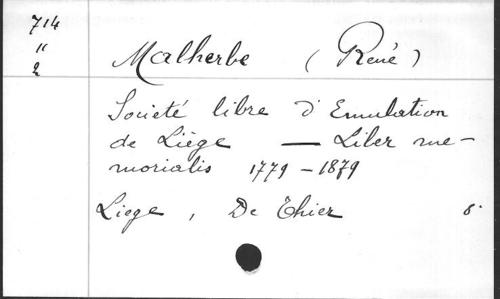 714
"
2
Malherbe (René)
Societé libre d'Emulation
de Liège — Liber me-
morialis 1779 - 1879
Liege, De Thier 8°